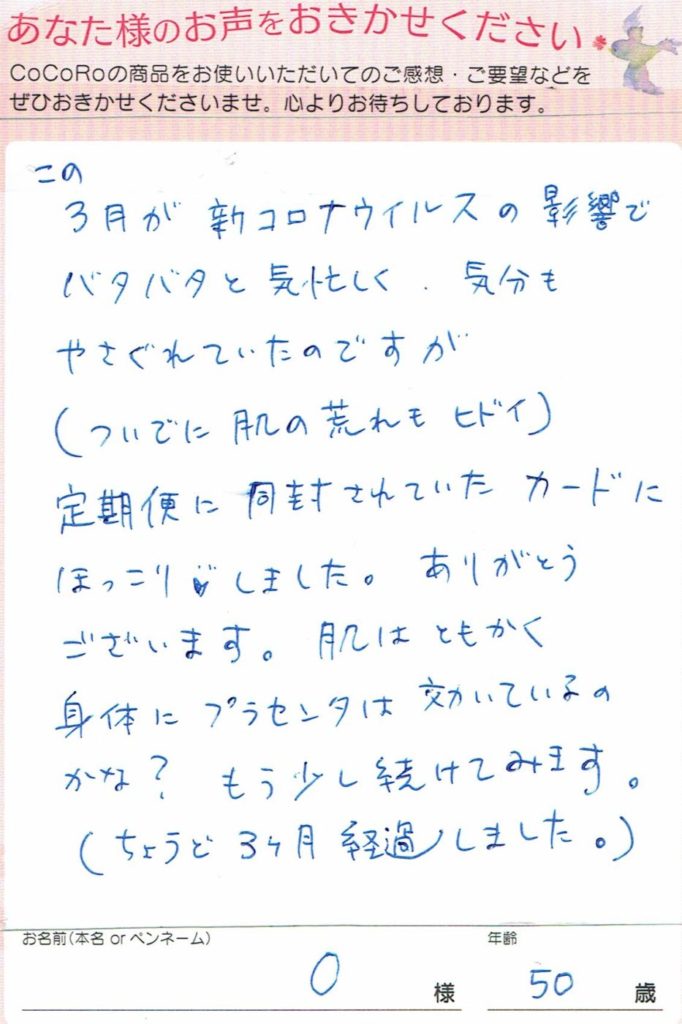 あなた様のお声をおきかせください
CoCoRoの商品をお使いいただいてのご感想・ご要望などを
ぜひおきかせくださいませ。心よりお待ちしております。
この
3月が 新コロナウイルスの影響で
バタバタと気忙しく、気分も
やさぐれていたのですが
(ついでに肌の荒れもヒドイ)
定期便に同封されていたカードに
ほっこり♡しました。ありがとう
ございます。肌はともかく
身体にプラセンタは効いているの
かな?もう少し続けてみます。
(ちょうど3ヶ月経過しました。)
お名前(本名 or ペンネーム)
年齢
O 様
50 歳